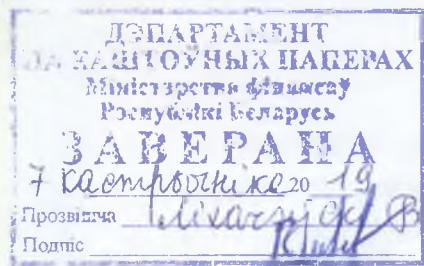 ДЭПАРТАМЕНТ
ПА КАШТОЎНЫХ ПАПЕРАХ
Міністэрства фінансаў
Рэспублікі Беларусь
ЗАВЕРАНА
7 кастрычніка 20 19
Прозвішча
Подпіс